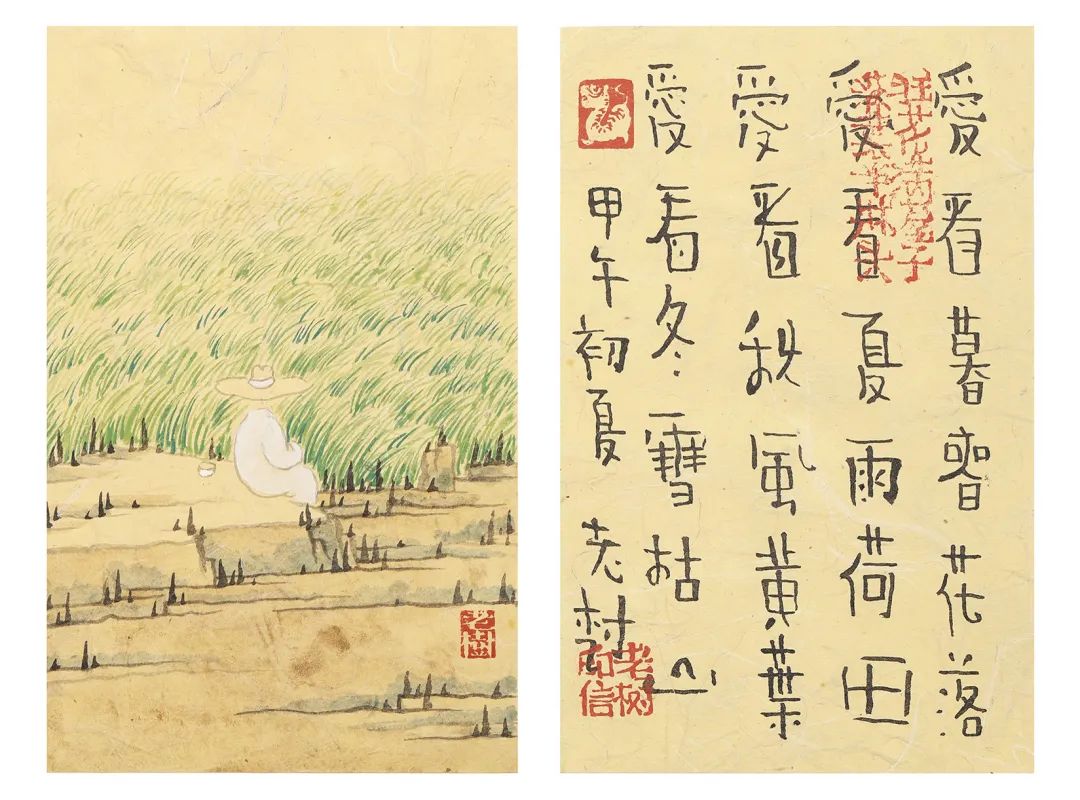 愛看春花落
愛看夏雨荷田
愛看秋風黃葉
愛看冬雪枯山
甲午初夏 老樹
老树信
老樹